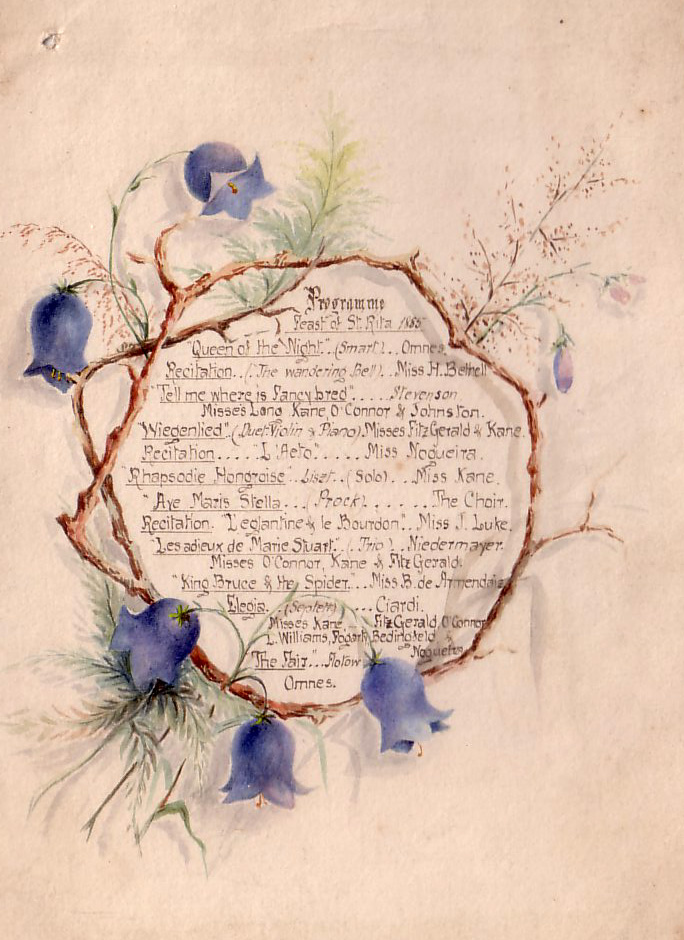 Programme
Feast of St. Rita 1885
"Queen of the Night." (Smart)... Omnes.
Recitation..("The wandering Bell)..Miss H. Bethell
"Tell me where is Fancy bred"..... Stevenson
Misses Long, Kane, O'Connor & Johnston.
"Wiegenlied" (Duet Violin & Piano) Misses FitzGerald & Kane.
Recitation..... "L'Aeto"..... Miss Nogueira.
"Rhapsodie Hongroise" Liszt..(Solo)...Miss Kane.
"Ave Maris Stella...(Prock)........The Choir.
Recitation. "L'eglantine & le Bourdon"..Miss J. Luke.
"Les adieux de Marie Stuart".(Trio)..Niedermayer.
Misses O'Connor, Kane & FitzGerald.
"King Bruce & the Spider."...Miss B. de Armendaiz
Elegia. (Septett)....Ciardi.
Misses Kane, FitzGerald, O'Connor
L. Williams, Fogarty, Bedingfeld &
Nogueira
"The Fair"...Flotow
Omnes.